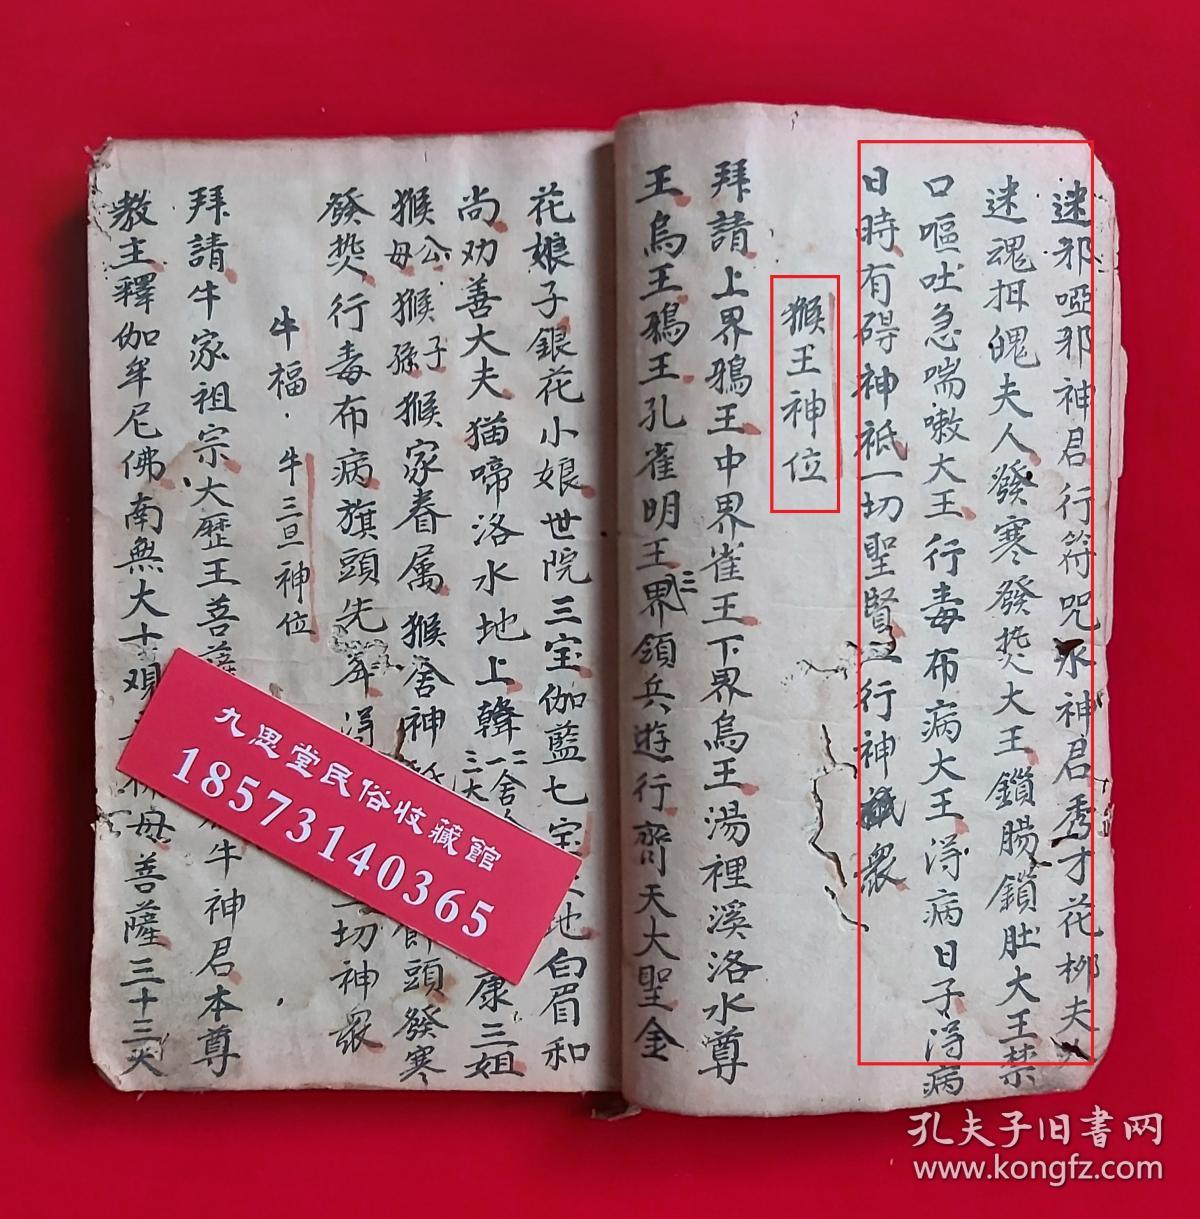 迷邪哑邪神君行符咒水神君秀才花柳夫人
迷魂抇魄夫人發寒發焚大王鎖腸鎖肚大王禁
口嘔吐急喘嗽大王行毒布病大王淂病日子淂病
日時有碍神祇一切聖賢一行神祇衆
猴王神位
拜請上界鴉王中界雀王下界烏王湯裡溪洛水尊
王烏王鴉王孔雀明王三界領兵遊行齊天大聖金
花娘子銀花小娘世院三宝伽藍七宝地白眉和
尚劝善大夫猫啼洛水地上韓一二三舍大康三姐
猴公猴母猴子猴孫猴家眷属猴舍神頭發寒
發焚行毒布病旗頭先淂切神眾
牛福牛三旦神位
拜請牛家祖宗大歷王菩薩牛神君本尊
教主釋伽牟尼佛南無大母善薩三十三天
九思堂民俗收藏館
18573140365
孔夫子旧書网
www.kongfz.com